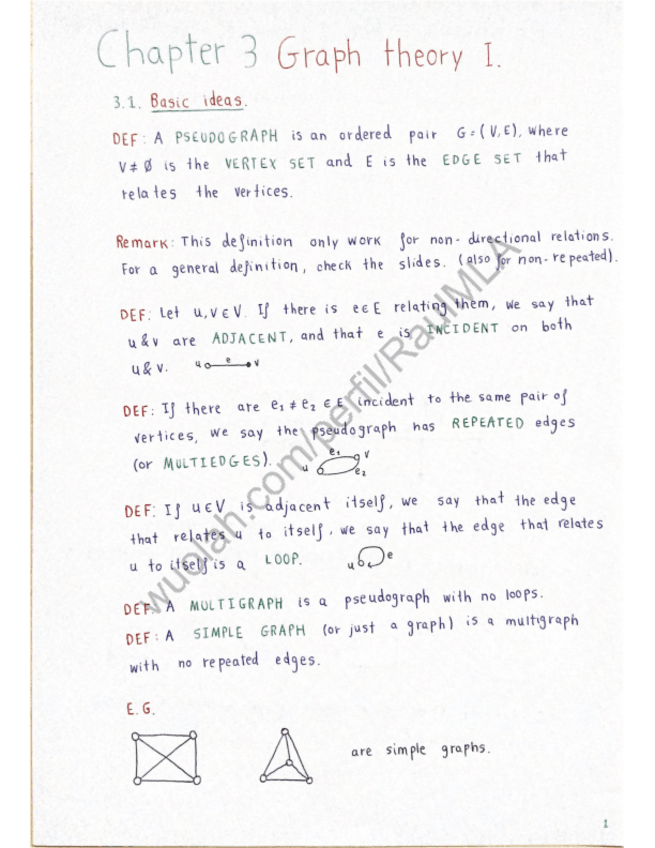 Chapter 3 Graph theory I.
3.1. Basic ideas.
DEF: A PSEUDOGRAPH is an ordered pair G=(V,E), where
V≠Ø is the VERTEX SET and E is the EDGE SET that
relates the vertices.
Remark: This definition only work for non-directional relations.
For a general definition, check the slides. (also for non-repeated).
DEF: Let u,v∈V. If there is e∈E relating them, we say that
u & v are ADJACENT, and that e is INCIDENT on both
u & v. u e v
DEF: If there are e₁≠e₂∈E incident to the same pair of
vertices, we say the pseudograph has REPEATED edges
(or MULTIEDGES). u e₁ v e₂
DEF: If u∈V is adjacent itself, we say that the edge
that relates u to itself, we say that the edge that relates
u to itself is a LOOP. u e
DEF: A MULTIGRAPH is a pseudograph with no loops.
DEF: A SIMPLE GRAPH (or just a graph) is a multigraph
with no repeated edges.
E.G.
are simple graphs.
1
wuolah.com/perfil/RaulMLA